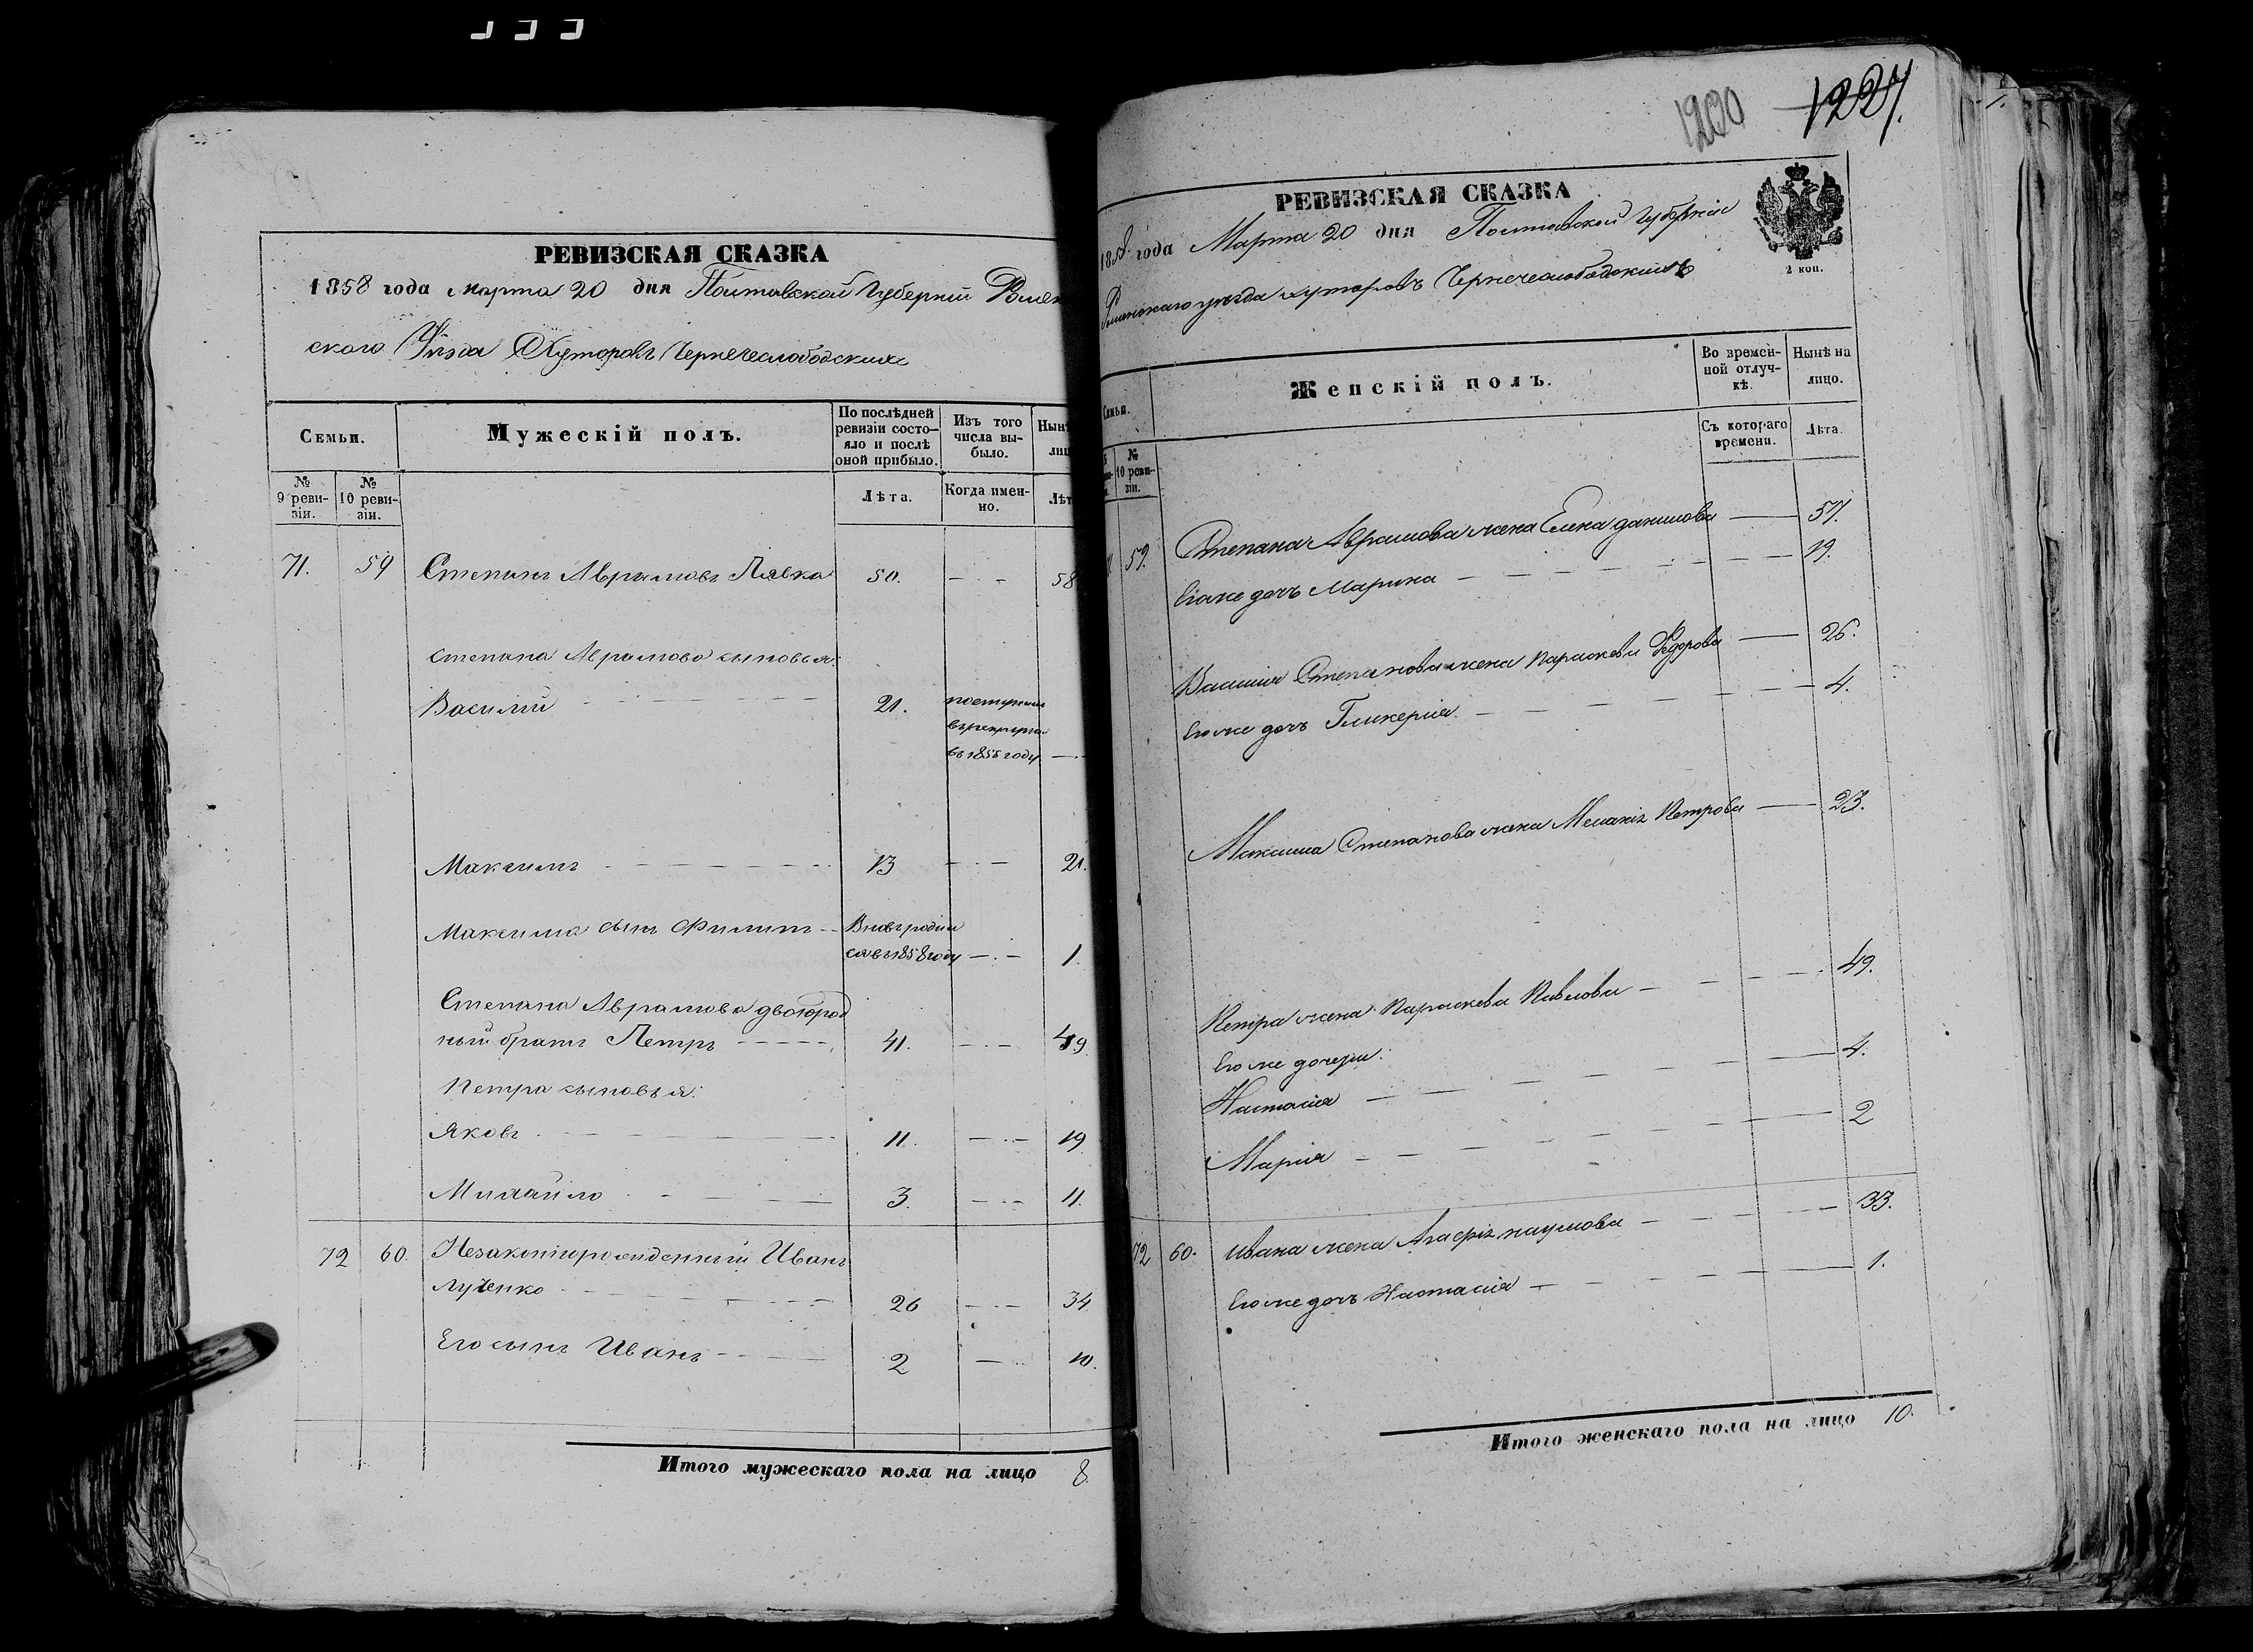 РЕВИЗСКАЯ СКАЗКА
1858 года марта 20 дня Полтавской Губерніи Ромен
ского Уѣзда Хуторовъ Чернечеслободскихъ
Семьи.
Мужескій полъ.
По послѣдней ревизіи состояло и послѣ оной прибыло.
Изъ того числа выбыло.
№ 9 ревизіи.
№ 10 ревизіи.
Лѣта.
Когда именно.
71. 59 Степанъ Аврамовъ Павка 50. 58
Степана Аврамова сыновья:
Василий 21. поступилъ
въ рекруты
въ 1855 году
Максимъ 13 21.
Максима сынъ Филипъ Вновь родил
ся въ 1858 году 1.
Степана Аврамова двоюрод
ный братъ Петръ 41. 49.
Петра сыновья:
Яковъ 11. 19
Михайло 3. 11.
72 60. Незаконнорожденный Иванъ
Луценко 26 34.
Его сынъ Иванъ 2 10.
Итого мужескаго пола на лицо 8.
1200 1227.
РЕВИЗСКАЯ СКАЗКА
1858 года Марта 20 дня Полтавской Губерніи
2 коп.
Роменскаго уѣзда хуторовъ Чернечеслободскихъ
Семьи.
Женскій полъ.
Во временной отлучкѣ.
Нынѣ на лицо.
№ 10 ревизіи.
Съ котораго времени.
Лѣта.
59. Степана Аврамова жена Елена данилова 57.
Егоже дочь Марина 19.
Василия Степанова жена Параскева Федорова 26.
Егоже дочь Гликерія 4.
Максима Степанова жена Меланія Петрова 23.
Петра жена Параскева Павлова 49.
Егоже дочери:
Настасія 4.
Марія 2
72 60. Ивана жена Агафія наумова 33.
Егоже дочь Настасія 1.
Итого женскаго пола на лицо 10.